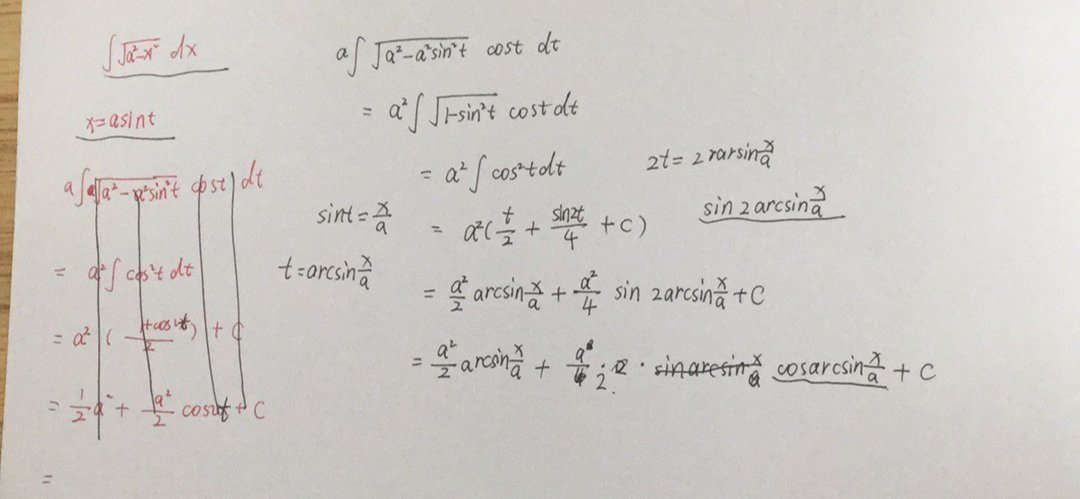 ∫√(a²-x²) dx
x=asint
a∫√(a²-a²sin²t) cost dt
= a²∫cos²t dt
= a² (
) + C
= 1/2 a² + a²/2 cos2t + C
=
a∫√(a²-a²sin²t) cost dt
= a²∫√(1-sin²t) cost dt
= a²∫cos²t dt
2t = 2 rarsin x/a
sint = x/a
= a²(t/2 + sin2t/4 + C)
sin 2 arcsin x/a
t = arcsin x/a
= a²/2 arcsin x/a + a²/4 sin 2arcsin x/a + C
= a²/2 arcsin x/a + a²/2 · sinarcsin x/a cosarcsin x/a + C